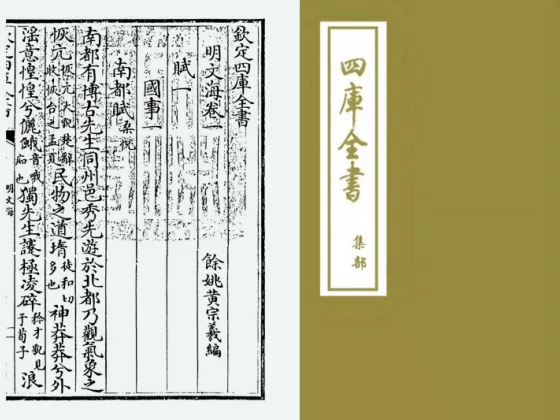 欽定四庫全書
明文海卷一 餘姚黃宗羲編
賦一
國事一
南都賦 桑悅
南都有博古先生同州邑秀先遊於北都乃觀氣象之
恢亢恢亢大貌楚辭收恢台之孟夏民物之道堶徒和切多也神莽莽兮外
滛意惶惶兮儷音哦船也獨先生極凌碎矜才貌見于荀子浪
明文海
四庫全書
集部